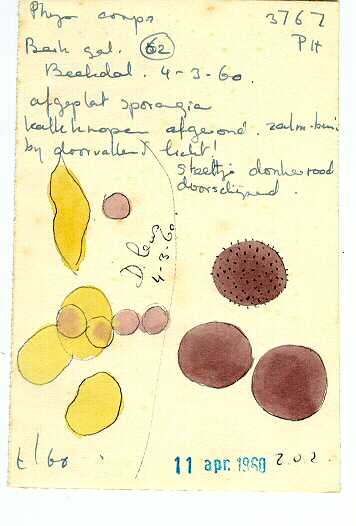 Physo comps 3767
Bark gel. 62 PH
Beekdal. 4-3-60.
afgeplat sporangia
kalkknopen afgerond. zalm-
by doorvallend licht!
steeltje donkerrood
doorschijnend.
4-3-60.
t/60
11 apr. 1960 202.